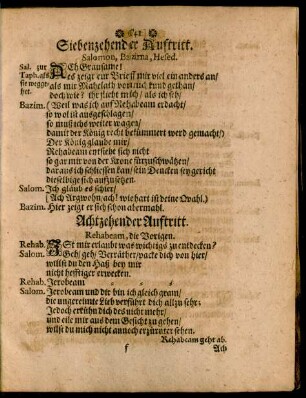 Siebenzehender Aufftritt.
Salomon, Bazima, Hesed.
Sal. zur ACh Grausame!
Taph. als Es zeigt eur Brieff mir viel ein anders an/
sie weggehet. als mit Mahelath von und kund gethan/
doch wie? ihr sieht mich/ als ich seh/
Bazim. (Weil was ich auf Rehabeam erdacht/
so wol ist ausgeschlagen/
so muß ichs weiter wagen/
damit der König recht bekümmert werd gemacht/)
Der König glaube mir/
Rehabeam entsieht sich nicht
so gar mir von der Krone fürzuschwätzen/
daraus ich schliessen kan/ sein Dencken sey gericht
dieselbige sich aufzusetzen.
Salom. Ich gläub es schier/
(Ach Argwohn/ ach! wie hart ist deine Qwahl.)
Bazim. Hier zeigt er sich schon abermahl.
Achtzehender Aufftritt.
Rehabeam, die Vorigen.
Rehab. IST mir erlaubt was wichtigs zu entdecken?
Salom. Geh/ geh/ Verräther/ packe dich von hier/
willst du den Haß bey mir
nicht hefftiger erwecken.
Rehab. Jerobeam
Salom. Jerobeam und dir bin ich gleich gram/
die ungereimte Lieb verführt dich allzu sehr;
Jedoch erkühn dich des nicht mehr/
und eile mir aus dem Gesicht zu gehen/
wilst du mich nicht annoch erzürnter sehen.
Rehabeam geht ab.
f Ach